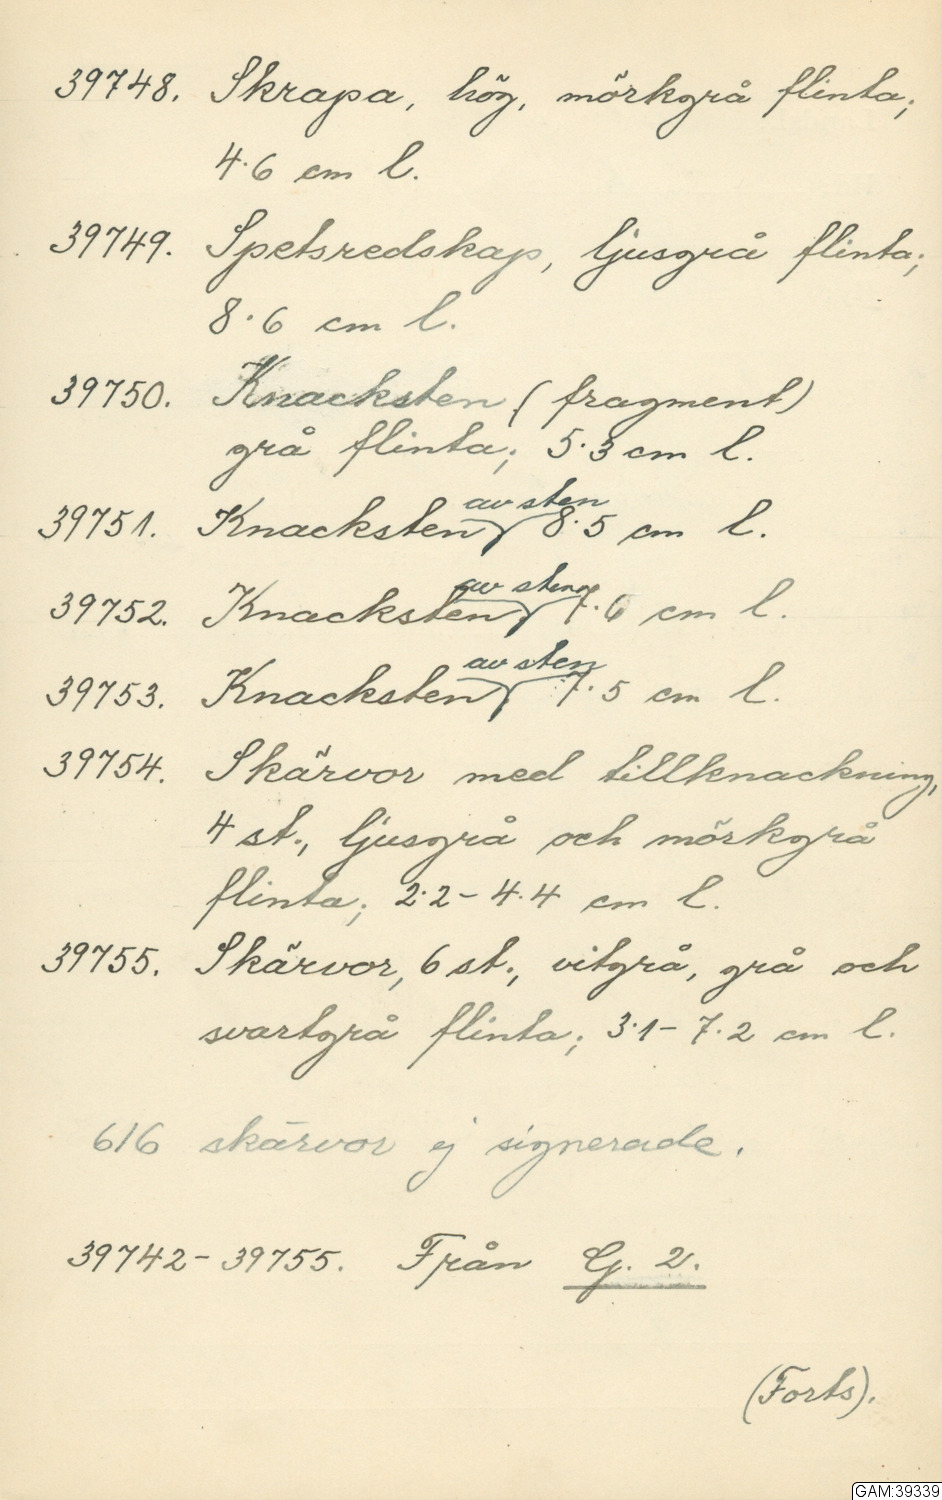 39748. Skrapa, hög, mörkgrå flinta;
4.6 cm l.
39749. Spetsredskap, ljusgrå flinta;
8.6 cm l.
39750. Knacksten (fragment)
grå flinta; 5.3 cm l.
39751. Knacksten av sten; 8.5 cm l.
39752. Knacksten av sten; 7.6 cm l.
39753. Knacksten av sten; 7.5 cm l.
39754. Skärvor med tillknackning,
4 st., ljusgrå och mörkgrå
flinta; 2.2 – 4.4 cm l.
39755. Skärvor, 6 st., vitgrå, grå och
svartgrå flinta; 3.1 – 7.2 cm l.
616 skärvor ej signerade.
39742 – 39755. Från G. 2.
(Forts).
GAM:39339